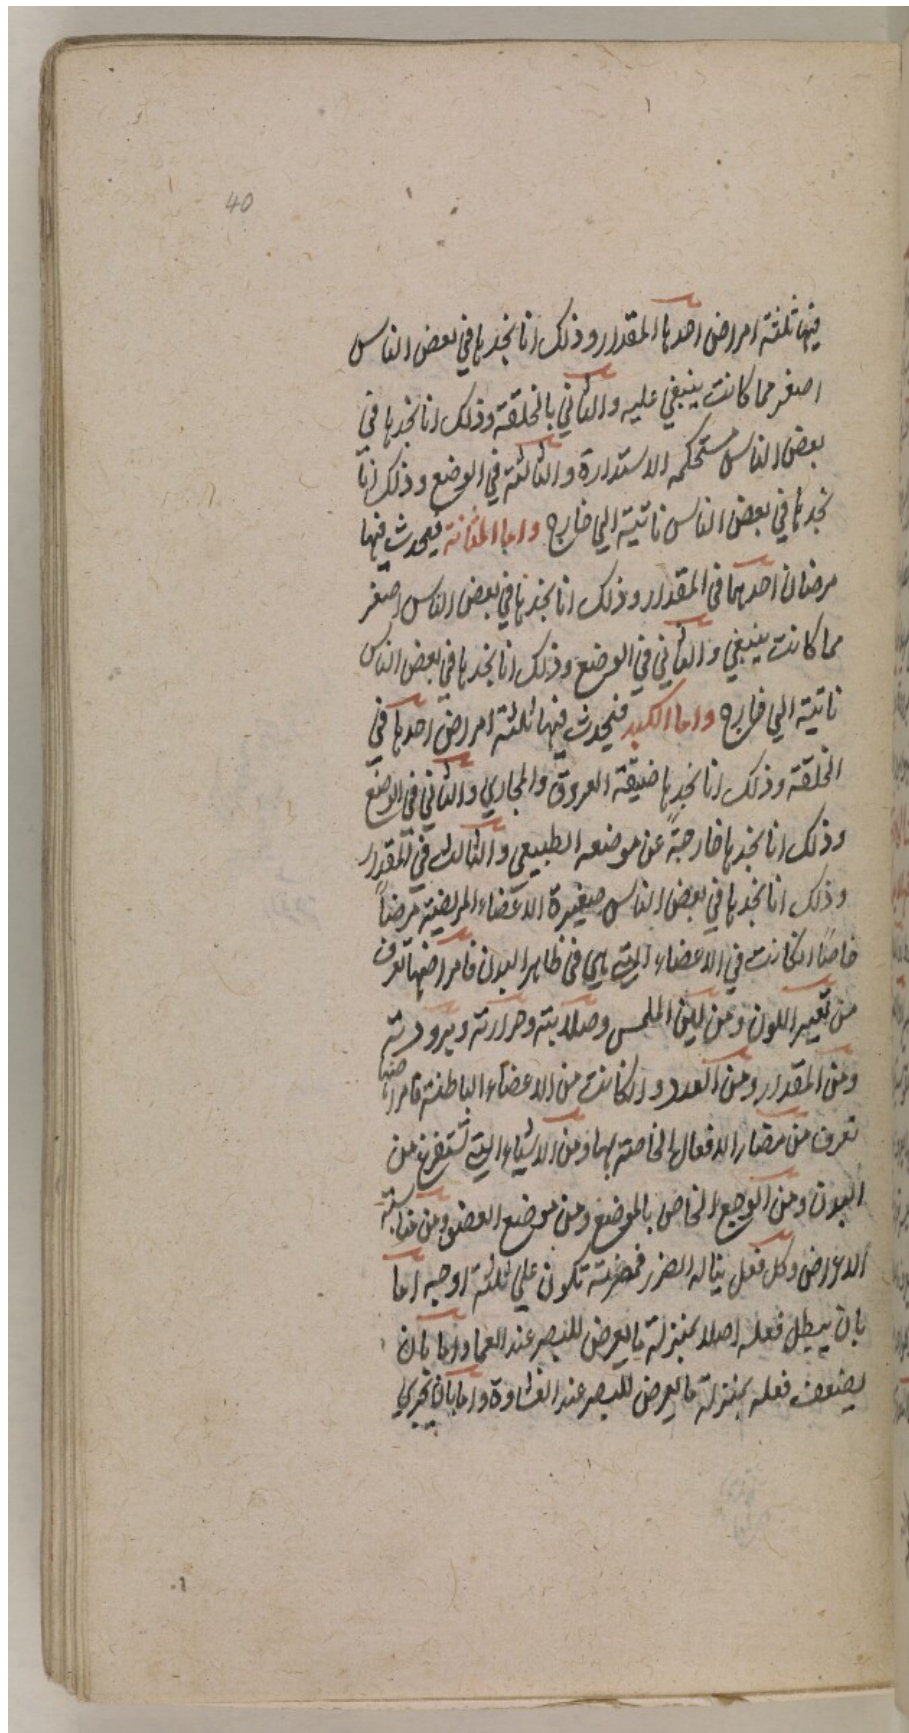 40
فيها ثلثة امراض احدها المقدار وذلك انا نجدها في بعض الناس
اصغر مما كانت ينبغي عليه والثاني بالخلقة وذلك انا نجدها في
بعض الناس مستحكمه الاستدارة والثالثة في الوضع وذلك انا
نجدها في بعض الناس ناتية الي خارج واما المثانة فيحدث فيها
مرضان احدهما في المقدار وذلك انا نجدها في بعض الناس اصغر
مما كانت ينبغي والثاني في الوضع وذلك انا نجدها في بعض الناس
ناتية الي خارج واما الكبد فيحدث فيها ثلثة امراض احدها في
الخلقة وذلك انا نجدها ضيقة العروق والمجاري والثاني في الوضع
وذلك انا نجدها خارجةً عن موضعه الطبيعي والثالث في المقدار
وذلك انا نجدها في بعض الناس صغيرة الاعضاء المريضة مرضاً
خاصًا انكانت في الاعضاء التي هي في ظاهر البدن فامراضها تعرف
من تغير اللون ومن لين الملمس وصلابته وحرارته وبرودته
ومن المقدار ومن العدد وانكانت من الاعضاء الباطنة فامراضها
تعرف من مضار الافعال الخاصة بها ومن الاشياء التي تستفرغ من
البدن ومن الوجع الخاص بالموضع ومن موضع العضو ومن مناسبة
الاعراض وكل فعل يناله الضرر فمضرته تكون علي ثلثة اوجه اما
بان يبطل فعله اصلا بمنزلة ما يعرض للبصر عند العما واما بان
يضعف فعله بمنزلة ما يعرض للبصر عند الغشاوة واما بان يجري